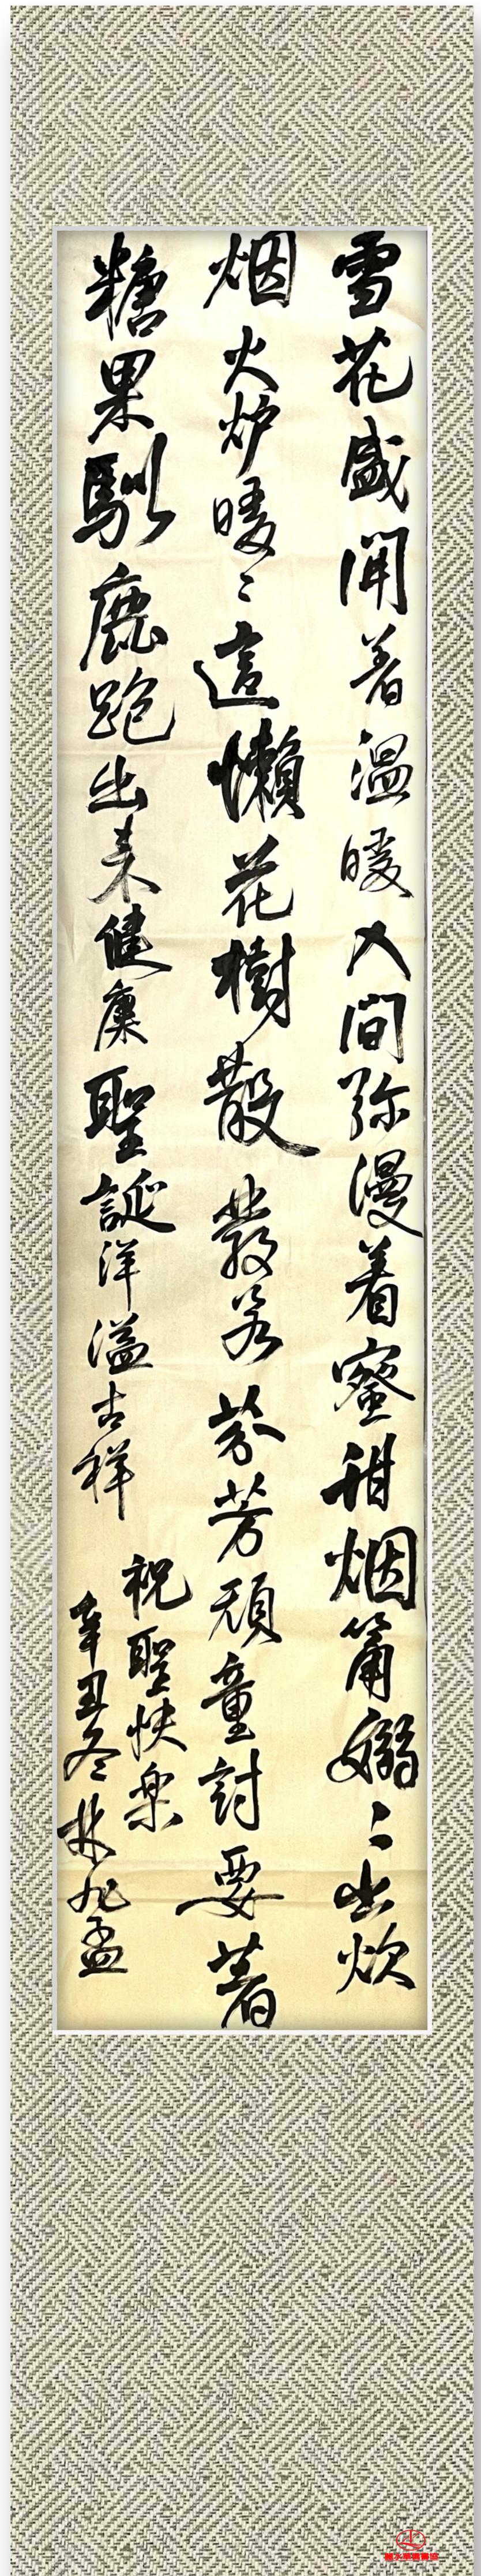 雪花盛開着温暖人间弥漫着蜜甜烟筩嫋〻出炊
烟火炉暖〻這懶花樹散發着芬芳頑童討要著
糖果馴鹿跑出来健康聖誕洋溢吉祥
祝聖快楽
辛丑冬林旭孟